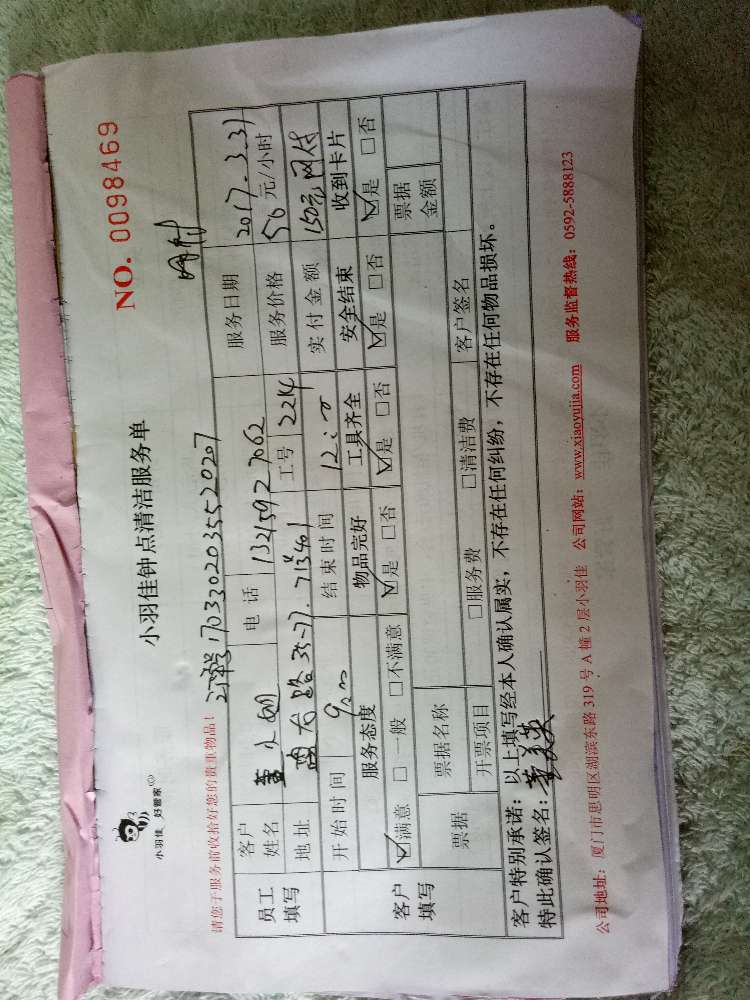 小羽佳 好管家
小羽佳钟点清洁服务单
NO. 0098469
请您于服务前收拾好您的贵重物品！
订单号17033020355520207 网付
员工填写 客户姓名 电话 13215927062 服务日期 2017.3.31
地址 工号 2214 服务价格 50元/小时
开始时间 9:00 结束时间 12:00 实付金额 150元网付
客户填写 服务态度 物品完好 工具齐全 安全结束 收到卡片
☑满意 □一般 □不满意 ☑是 □否 ☑是 □否 ☑是 □否 ☑是 □否
票据 票据名称 票据金额
开票项目 □服务费 □清洁费 客户签名
客户特别承诺：以上填写经本人确认属实，不存在任何纠纷，不存在任何物品损坏。
特此确认签名：
公司地址：厦门市思明区湖滨东路319号A幢2层小羽佳 公司网站：www.xiaoyujia.com 服务监督热线：0592-5888123